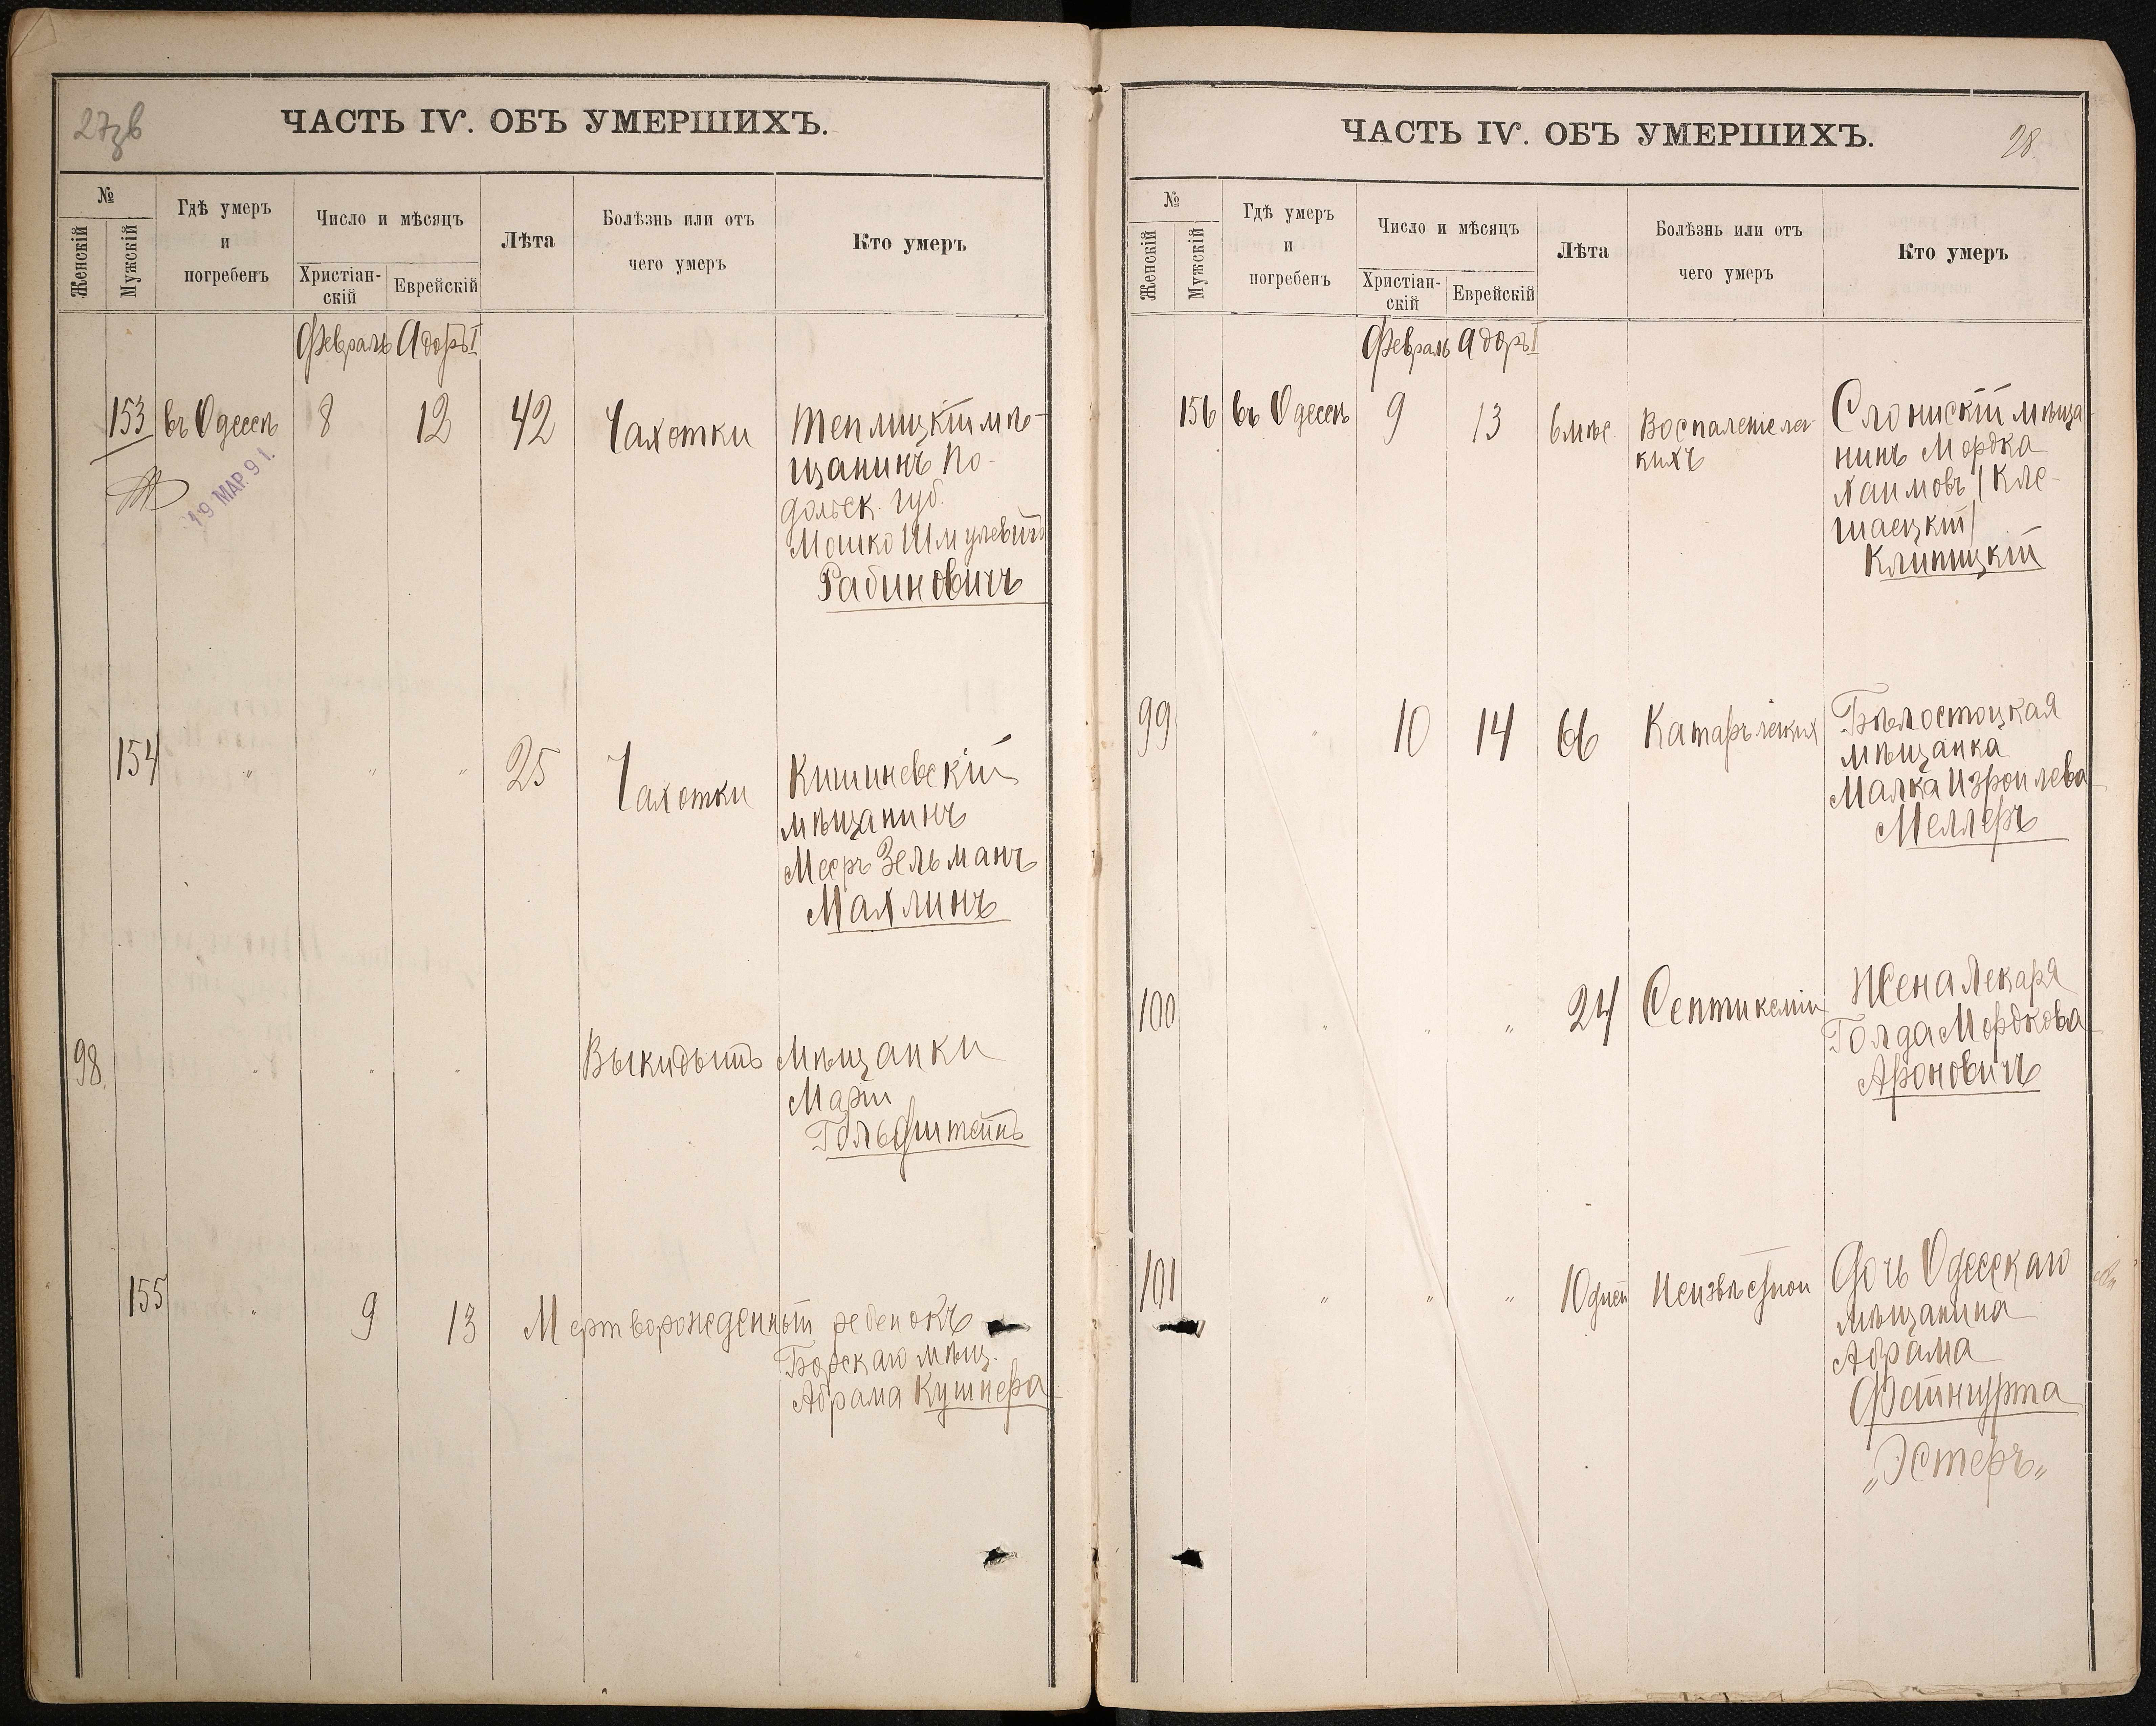 27зв
ЧАСТЬ IV. ОБЪ УМЕРШИХЪ.
№
Женскій
Мужскій
Гдѣ умеръ
и
погребенъ
Число и мѣсяцъ
Христіан-
скій
Еврейскій
Лѣта
Болѣзнь или отъ
чего умеръ
Кто умеръ
Февраль Адоръ I
153 въ Одессѣ 8 12 42 Чахотки Теплицкій мѣ-
щанинъ По-
дольск. губ.
Мошко Шмулевичъ
Рабиновичъ
19 МАР. 91.
154 " " " 25 Чахотки Кишиневскій
мѣщанинъ
Мееръ Зельманъ
Махлинъ
98. " " " Выкидышъ Мѣщанки
Маріи
Гольдштейнъ
155 " 9 13 Мертворожденный ребенокъ
Борскаго мѣщ.
Абрама Кушнера
ЧАСТЬ IV. ОБЪ УМЕРШИХЪ.
28.
№
Женскій
Мужскій
Гдѣ умеръ
и
погребенъ
Число и мѣсяцъ
Христіан-
скій
Еврейскій
Лѣта
Болѣзнь или отъ
чего умеръ
Кто умеръ
Февраль Адоръ I
156 въ Одессѣ 9 13 6 мѣс. Воспаленіе лег-
кихъ
Слонискій мѣща-
нинъ Мордка
Хаимовъ (Кле-
шаецкій)
Клипицкій
99. " 10 14 66 Катаръ легких Бѣлостоцкая
мѣщанка
Малка Изроилева
Меллеръ
100 " " " 24 Септикеміи Жена Лекаря
Голда Мордкова
Ароновичъ
101 " " " 10 дней Неизвѣстной Дочь Одесскаго
мѣщанина
Абрама
Файнгурта
„Эстеръ„